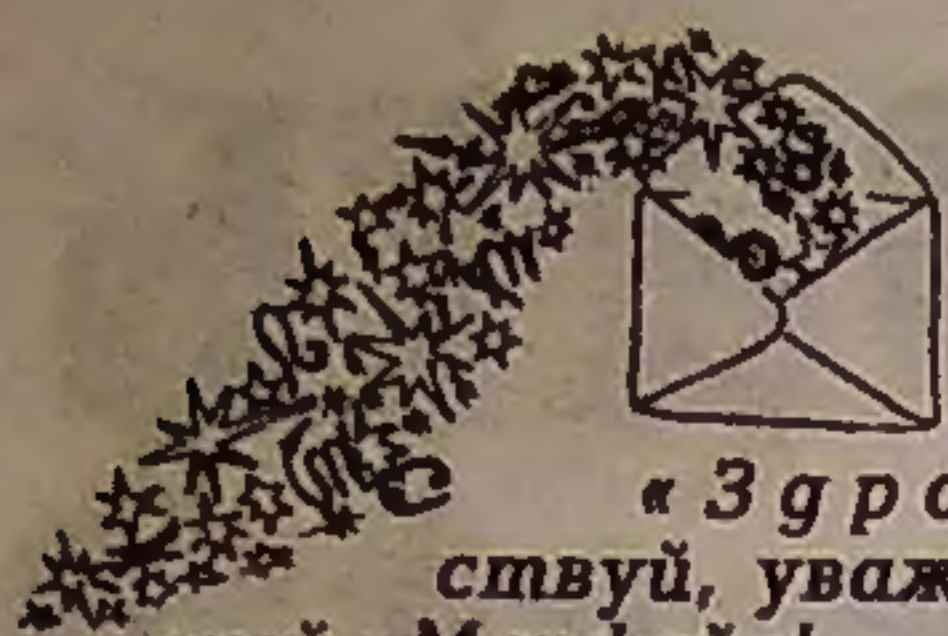 « З д р
ствуй, уваж